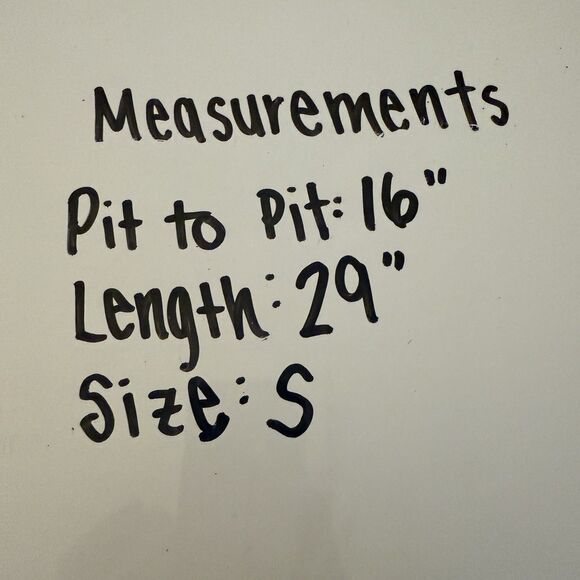 Measurements
Pit to Pit: 16"
Length: 29"
Size: S